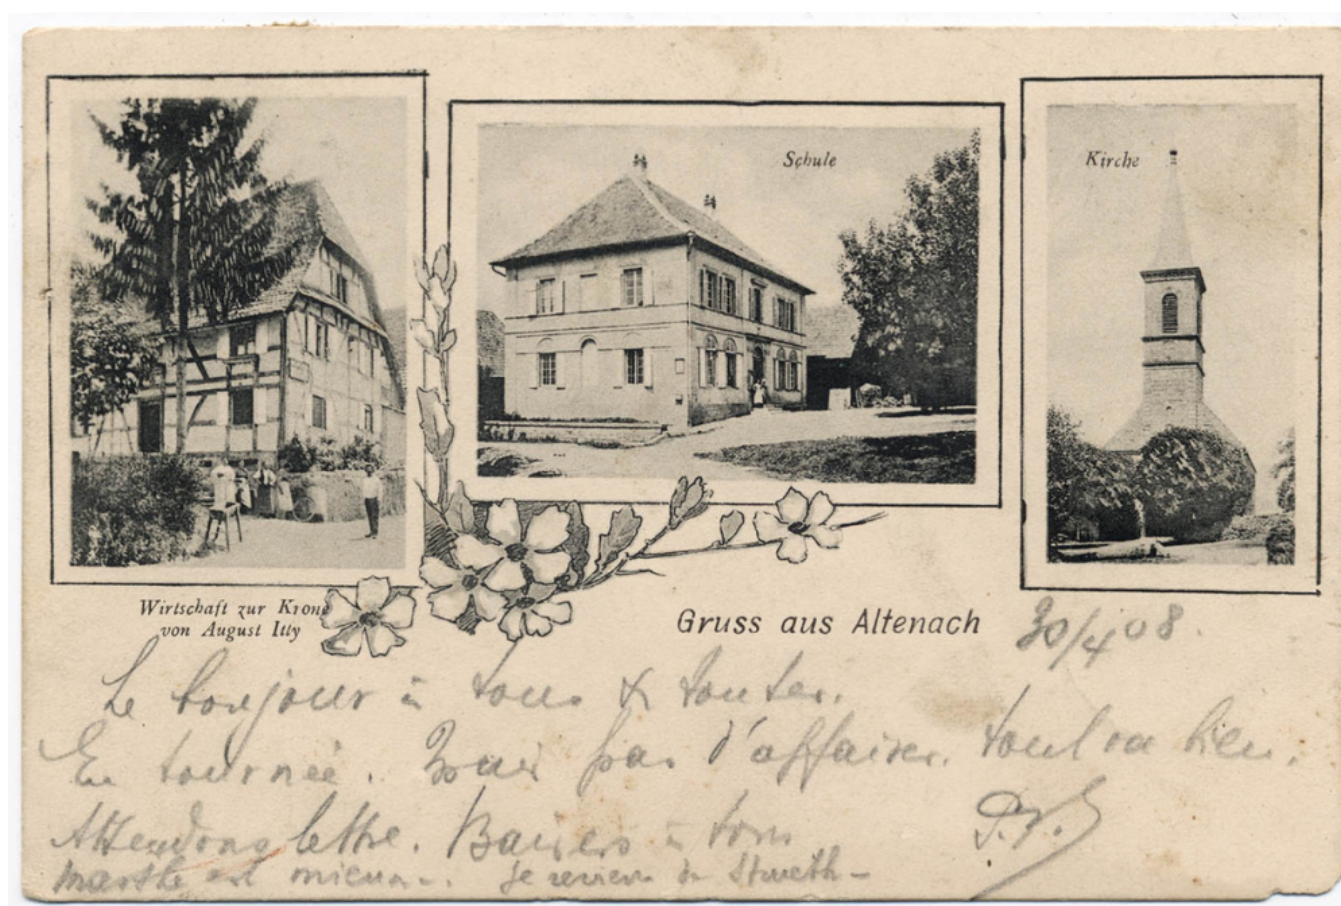 Schule
Kirche
Wirtschaft zur Krone
von August Itty
Gruss aus Altenach
30/4 08.
Le bonjour à tous & toutes.
En tournée. Mais pas d'affaires. tout va bien.
Attendons lettre. Baisers à tous
Marthe est mieux. je reviens de